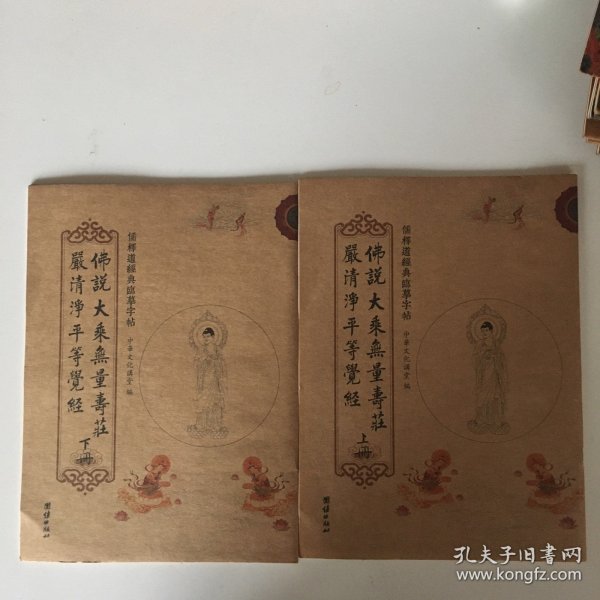 儒釋道經典臨摹字帖
佛説大乘無量壽莊
嚴清淨平等覺經
下冊
中華文化講堂 編
團结出版社
儒釋道經典臨摹字帖
佛説大乘無量壽莊
嚴清淨平等覺經
上冊
中華文化講堂 編
團结出版社
孔夫子旧书网
www.kongfz.com